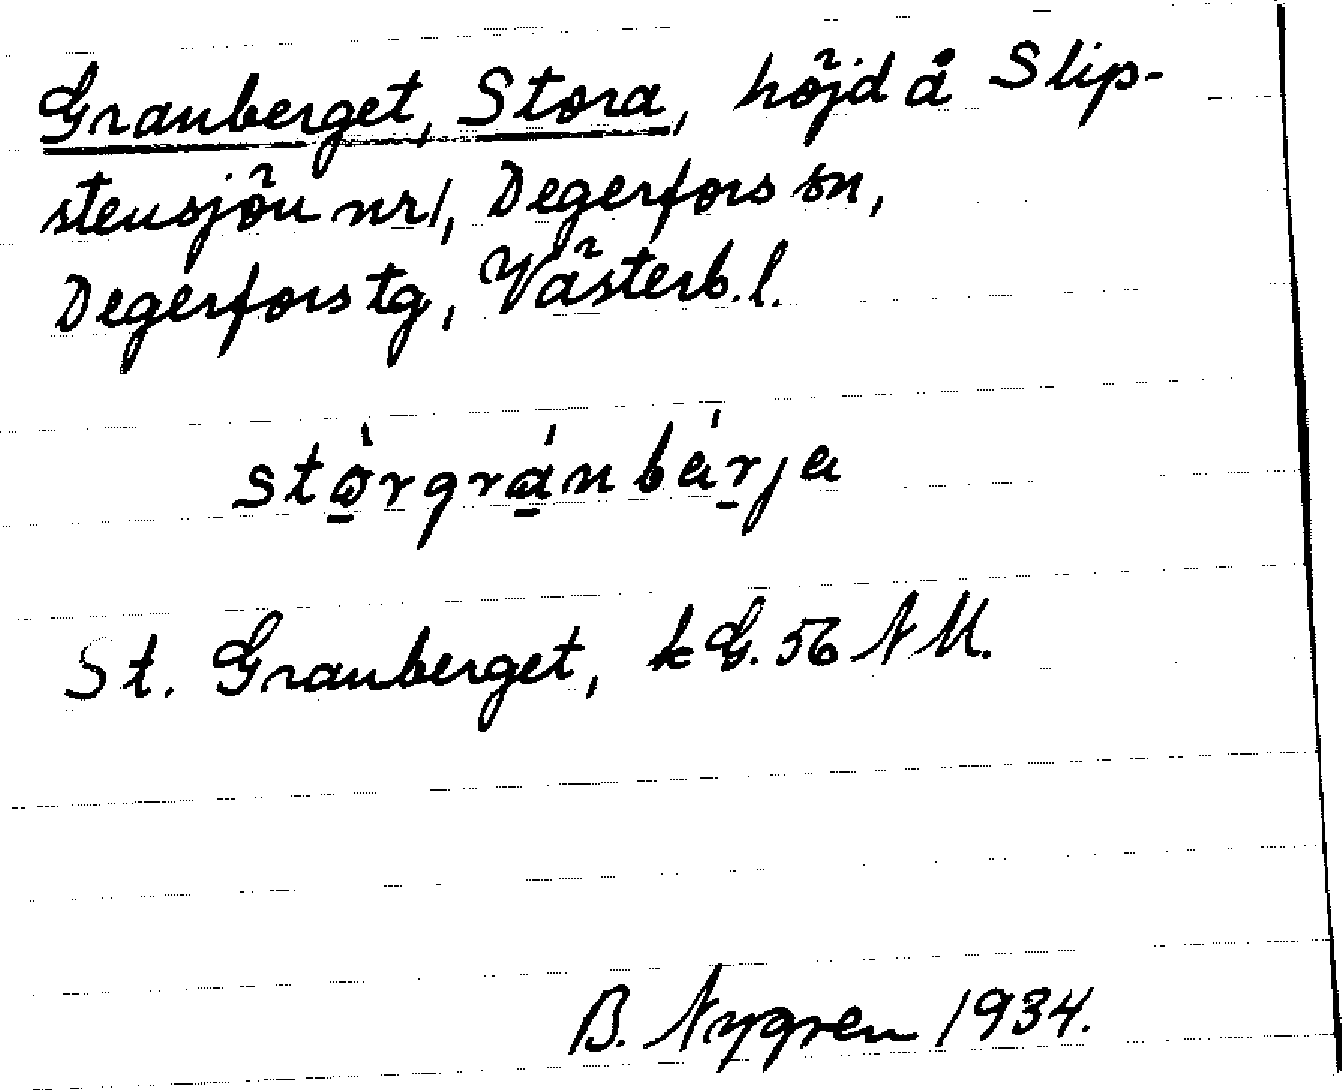 Granberget, Stora, höjd å Slip-
stensjön nr 1, Degerfors sn,
Degerfors tg, Västerb. l.
stò̱rgrá̱nbár̠ja
St. Granberget, k G. 56 NM.
B. Nygren 1934.